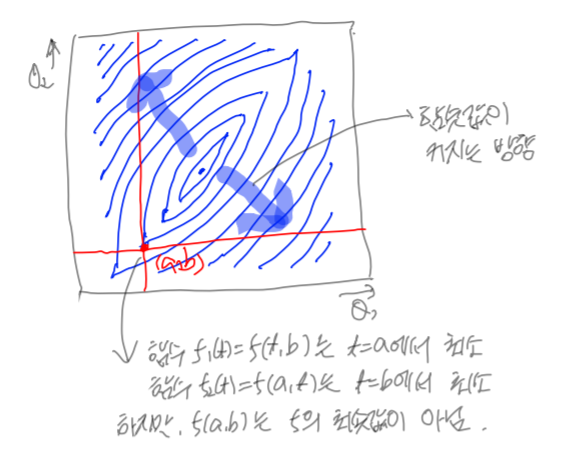 θ₂
함숫값이
커지는 방향
(a,b)
θ₁
함수 f₁(t)=f(t,b)는 t=a에서 최소
함수 f₂(t)=f(a,t)는 t=b에서 최소
하지만, f(a,b)는 f의 최솟값이 아님.